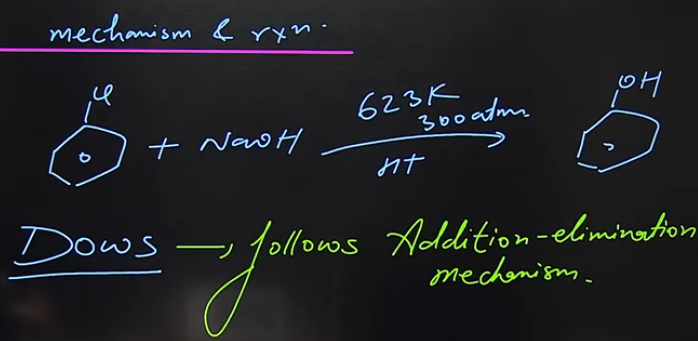 mechanism & rxn.
Cl
OH
+ NaOH
623K
300atm
HT
Dows → follows Addition-elimination
mechanism.